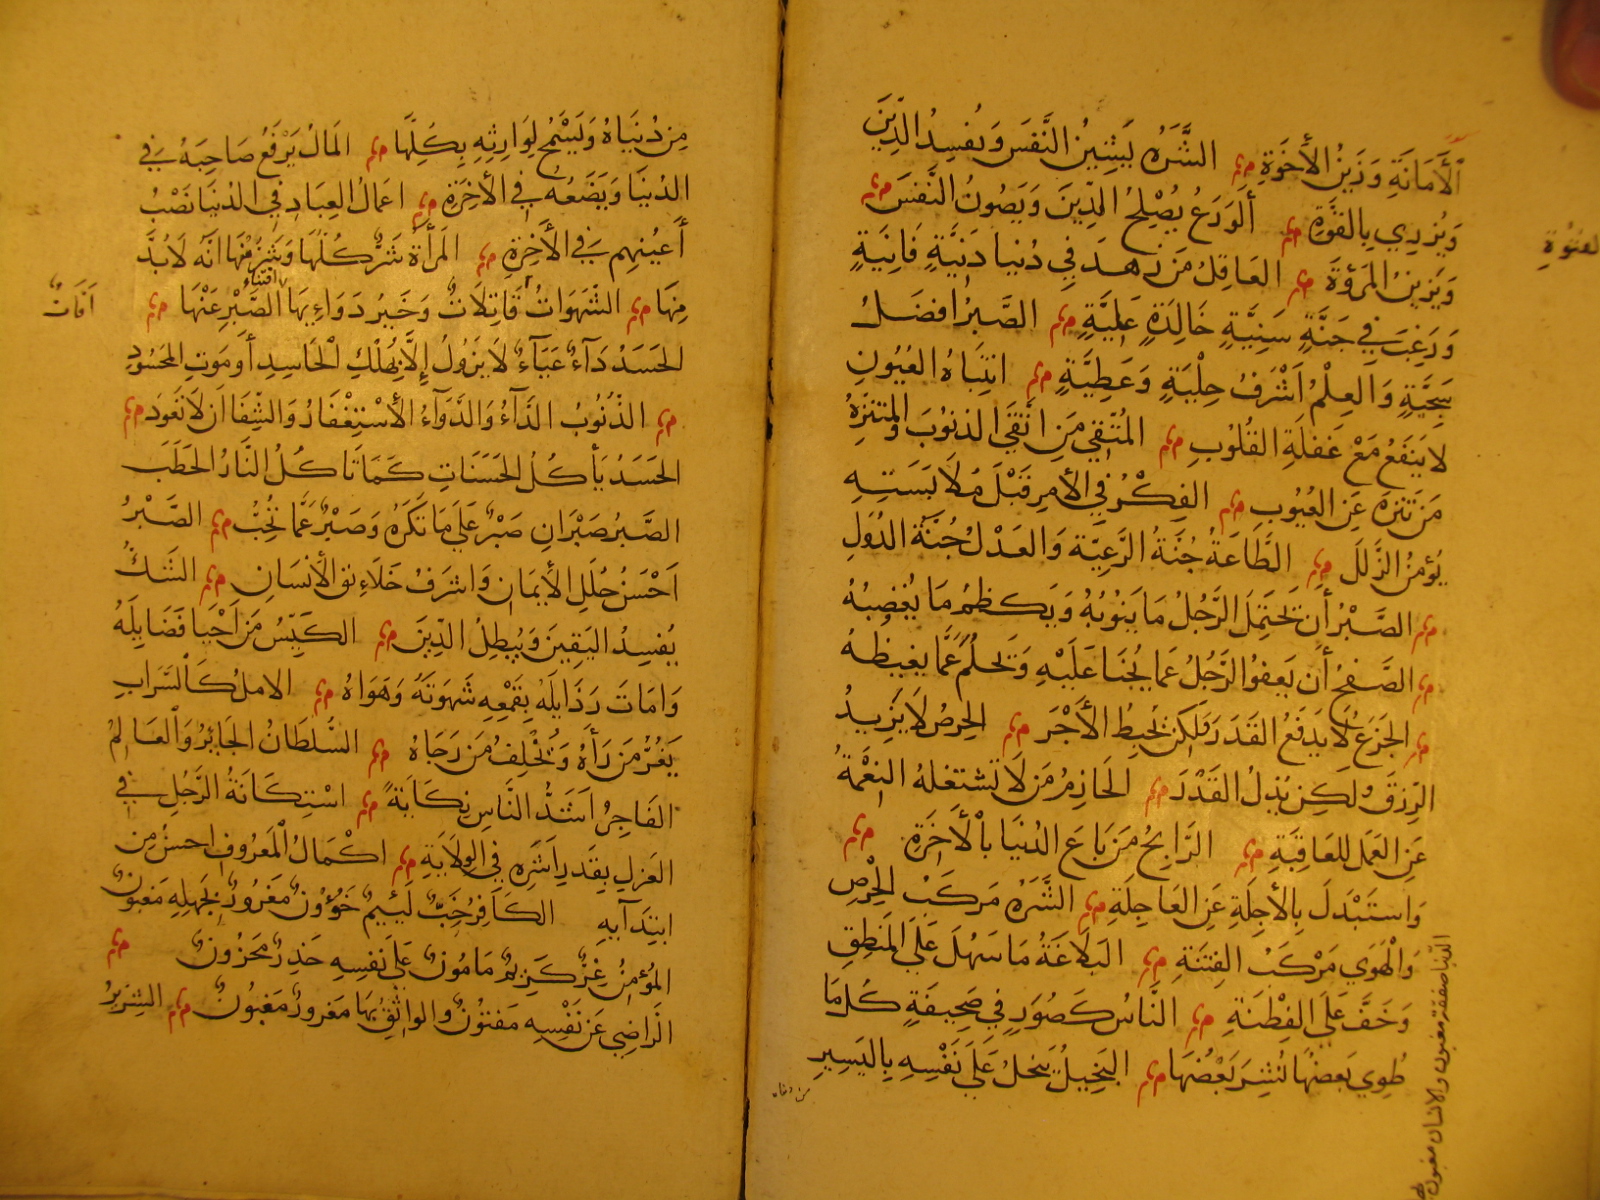 الأَمَانَةِ وَزَيْنُ الأُخُوَّةِ الشَّرَهُ يَشِينُ النَّفْسَ وَيُفْسِدُ الدِّينَ
وَيُزْرِي بِالفُتُوَّةِ أَلْوَرَعُ يُصْلِحُ الدِّينَ وَيَصُونُ النَّفْسَ
وَيَزِينُ المُرُوَّةَ العَاقِلُ مَنْ زَهِدَ فِي دُنْيَا دَنِيَّةٍ فَانِيَةٍ
وَرَغِبَ فِي جَنَّةٍ سَنِيَّةٍ خَالِدَةٍ عَلِيَّةٍ الصَّبْرُ افضَلُ
سَجِيَّةٍ وَالعِلْمُ اَشْرَفُ حِلْيَةٍ وَعَطِيَّةٍ انتِبَاهُ العُيُونِ
لا يَنفَعُ مَعْ غَفلَةِ القُلُوبِ المُتَّقِي مَنِ اتَّقَى الذنُوبَ وَالمُتَنَزِّهُ
مَن تَنَزَّهَ عَنِ العُيُوبِ الفِكْرُ فِي الأَمرِ قَبْلَ مُلَابَسَتِهِ
يُؤمِنُ الزَّلَلَ الطَّاعَةُ جُنَّةُ الرَّعِيَّة وَالعَدْلُ جُنَّةُ الدُوَلِ
الصَّبْرُ أَن يَحتَمِلَ الرَّجُلُ مَا يَنُوبُهُ وَيَكظِمُ مَا يُغْضِبُهُ
الصَّفحُ أَن يَعفُوَ الرَّجُلُ عَمَا يُجْنَا عَلَيْهِ وَيَحلُمَ عَمَّا يغيظهُ
الجَزَعُ لَا يَدفَعُ القَدَرَ وَلَكِن يُحبِطُ الأَجْرَ الحِرصُ لَا يَزِيدُ
الرِّزقَ وَلَكِن يُذِلُّ القَدْرَ الحَازِمُ مَن لَا تشتغلهُ النِعْمَةُ
عَنِ العَمَلِ للعَاقِبَةِ الرَّابِحُ مَن بَاعَ الدُنيَا بالْأَخِرَةِ
وَاستَبْدَلَ بِالأَجِلَةِ عَنِ العَاجِلَةِ الشَّرَهُ مَركَبُ الحِرْصِ
وَالْهَوَي مَرْكَبُ الفِتنَةِ البَلَاغَةُ مَا سَهُلَ عَلَي المَنطِقِ
وَخَفَّ عَلَي الفِطْنَةِ النَّاسُ كَصُوَرٍ فِي صَحِيفَةٍ كُلمَا
طُوِيَ بَعضُهَا نُشِرَ بَعْضُهَا البَخِيلُ يَبخلُ عَلَى نَفْسِهِ بِاليَسِيرِ
الفتوةِ
الدنيا صفقة مغبون والانسان مغبون
من دنياه
مِن دُنيَاهُ وَيَسْمَحُ لِوَارِثِهِ بِكُلِّهَا المَالُ يَرْفَعُ صَاحِبَهُ فِي
الدُنيَا وَيَضَعُهُ فِي الأَخِرَةِ اعمَالُ العِبَادِ فِي الدُنيَا نَصْبُ
أَعيُنِهِم فِي الأَخِرَةِ المَرأَةُ شَرٌّ كُلُّهَا وَشَرٌّ مِنْهَا انَّه لَابُدَّ
مِنهَا الشَّهَوَاتُ قَاتِلَاتٌ وَخَيرُ دَوَاءِهَا الصَّبْرُ عَنْهَا
اقتناء
اَفَاتٌ
الحَسَدُ دَآءٌ عَيَّآءٌ لَا يَزُولُ إِلَّا بِهُلْكِ الْحَاسِدِ أَو مَوتِ المَحسُودِ
الذّنُوبُ الدَّآءُ وَالدَّوَآءُ الأسْتِغْفَارُ وَالشِّفَا ان لَا تَعُودَ
الحَسَدُ يَأكُلُ الحَسَنَاتِ كَمَا تَاكُلُ النَّارُ الحَطَبَ
الصَّبرُ صَبْرَانِ صَبْرٌ عَلَي مَا تَكرَهُ وَصَبْرٌ عَمَّا تُحِبُّ الصَّبْرُ
اَحْسَنُ حُلَلِ الأيمَانِ وَاشرَفُ خَلَاءِقِ الأنسَانِ الشَّكُّ
يُفسِدُ اليَقِينَ وَيُبطِلُ الدِّينَ الكَيِّسُ مَن اَحْيَا فَضَايِلَهُ
وَامَاتَ رَذَايلَهُ بِقَمْعِهِ شَهْوَتَهُ وَهَوَاهُ الاملُ كَالسَّرَابِ
يَغُرُّ مَن رَأَهُ وَيُخْلِفُ مَن رَجَاهُ السُّلطَانُ الجَائِرُ وَالعَالِمُ
الفَاجِرُ اَشَدُّ النَّاسِ نِكَايَةً اسْتِكَانَةُ الرَّجُلِ فِي
العَزلِ بِقَدرِ اَشَرِهِ فِي الوِلَايَةِ اكْمَالُ المَعرُوفِ احسَنُ مِن
ابتِدَآيِهِ الكَافِرُ خِبٌّ لَئِيمٌ خَؤُونٌ مَغرُورٌ بِجَهلِهِ مَغبُونٌ
المُؤمِنُ غِرٌّ كَرِيمٌ مَامُونٌ عَلَى نَفسِهِ حَذِرٌ مَحزُونٌ
الرَّاضِي عَن نَفْسِهِ مَفتُونٌ والواثِقُ بِهَا مَغرورٌ مَغبُونٌ الشِرِّيرُ